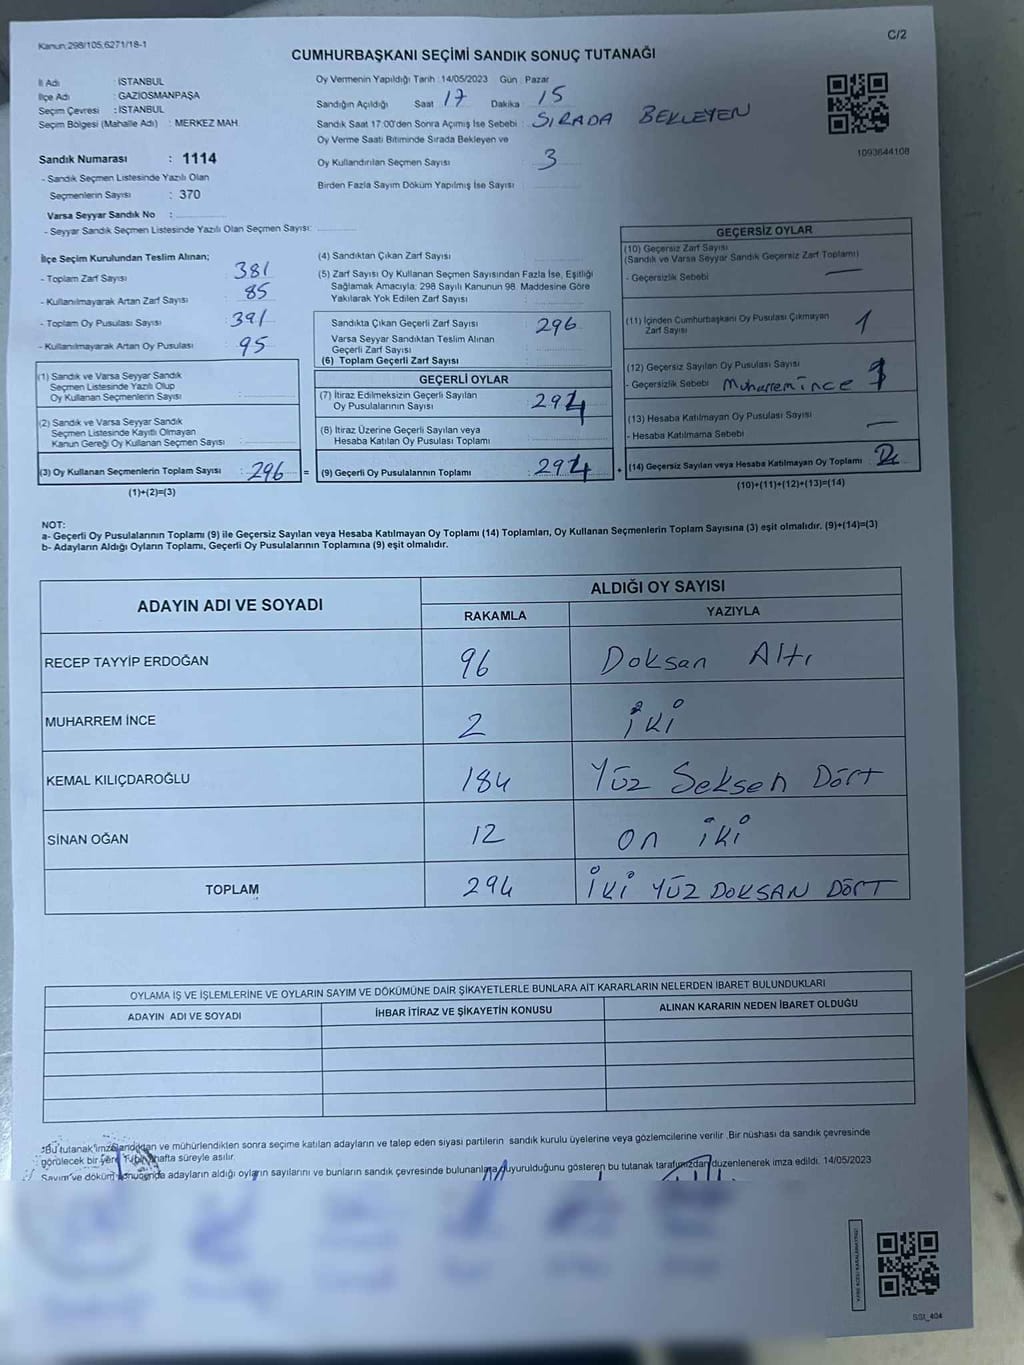 Kanun;298/105,6271/18-1
C/2
CUMHURBAŞKANI SEÇİMİ SANDIK SONUÇ TUTANAĞI
İl Adı : İSTANBUL
İlçe Adı : GAZİOSMANPAŞA
Seçim Çevresi : İSTANBUL
Seçim Bölgesi (Mahalle Adı) : MERKEZ MAH.
Sandık Numarası : 1114
- Sandık Seçmen Listesinde Yazılı Olan
Seçmenlerin Sayısı : 370
Varsa Seyyar Sandık No :
- Seyyar Sandık Seçmen Listesinde Yazılı Olan Seçmen Sayısı:
Oy Vermenin Yapıldığı Tarih :14/05/2023 Gün : Pazar
Sandığın Açıldığı Saat 17 Dakika 15
Sandık Saat 17:00'den Sonra Açımış İse Sebebi : SIRADA BEKLEYEN
Oy Verme Saati Bitiminde Sırada Bekleyen ve
Oy Kullandırılan Seçmen Sayısı 3
Birden Fazla Sayım Döküm Yapılmış İse Sayısı
1093644108
İlçe Seçim Kurulundan Teslim Alınan;
- Toplam Zarf Sayısı 381
- Kullanılmayarak Artan Zarf Sayısı 85
- Toplam Oy Pusulası Sayısı 391
- Kullanılmayarak Artan Oy Pusulası 95
(1) Sandık ve Varsa Seyyar Sandık
Seçmen Listesinde Yazılı Olup
Oy Kullanan Seçmenlerin Sayısı
(2) Sandık ve Varsa Seyyar Sandık
Seçmen Listesinde Kayıtlı Olmayan
Kanun Gereği Oy Kullanan Seçmen Sayısı
(3) Oy Kullanan Seçmenlerin Toplam Sayısı : 296 =
(1)+(2)=(3)
(4) Sandıktan Çıkan Zarf Sayısı
(5) Zarf Sayısı Oy Kullanan Seçmen Sayısından Fazla İse, Eşitliği
Sağlamak Amacıyla; 298 Sayılı Kanunun 98. Maddesine Göre
Yakılarak Yok Edilen Zarf Sayısı
Sandıkta Çıkan Geçerli Zarf Sayısı 296
Varsa Seyyar Sandıktan Teslim Alınan
Geçerli Zarf Sayısı
(6) Toplam Geçerli Zarf Sayısı
GEÇERLİ OYLAR
(7) İtiraz Edilmeksizin Geçerli Sayılan
Oy Pusulalarının Sayısı : 294
(8) İtiraz Üzerine Geçerli Sayılan veya
Hesaba Katılan Oy Pusulası Toplamı
(9) Geçerli Oy Pusulalarının Toplamı : 294 +
GEÇERSİZ OYLAR
(10) Geçersiz Zarf Sayısı
(Sandık ve Varsa Seyyar Sandık Geçersiz Zarf Toplamı)
- Geçersizlik Sebebi —
(11) İçinden Cumhurbaşkanı Oy Pusulası Çıkmayan
Zarf Sayısı 1
(12) Geçersiz Sayılan Oy Pusulası Sayısı
- Geçersizlik Sebebi Muharrem ince 1
(13) Hesaba Katılmayan Oy Pusulası Sayısı
- Hesaba Katılmama Sebebi —
(14) Geçersiz Sayılan veya Hesaba Katılmayan Oy Toplamı : 2
(10)+(11)+(12)+(13)=(14)
NOT:
a- Geçerli Oy Pusulalarının Toplamı (9) ile Geçersiz Sayılan veya Hesaba Katılmayan Oy Toplamı (14) Toplamları, Oy Kullanan Seçmenlerin Toplam Sayısına (3) eşit olmalıdır. (9)+(14)=(3)
b- Adayların Aldığı Oyların Toplamı, Geçerli Oy Pusulalarının Toplamına (9) eşit olmalıdır.
ADAYIN ADI VE SOYADI
ALDIĞI OY SAYISI
RAKAMLA YAZIYLA
RECEP TAYYİP ERDOĞAN 96 Doksan Altı
MUHARREM İNCE 2 İKİ
KEMAL KILIÇDAROĞLU 184 Yüz Seksen Dört
SİNAN OĞAN 12 on iki
TOPLAM 294 İKİ YÜZ DOKSAN DÖRT
OYLAMA İŞ VE İŞLEMLERİNE VE OYLARIN SAYIM VE DÖKÜMÜNE DAİR ŞİKAYETLERLE BUNLARA AİT KARARLARIN NELERDEN İBARET BULUNDUKLARI
ADAYIN ADI VE SOYADI İHBAR İTİRAZ VE ŞİKAYETİN KONUSU ALINAN KARARIN NEDEN İBARET OLDUĞU
Bu tutanak imzalandıktan ve mühürlendikten sonra seçime katılan adayların ve talep eden siyasi partilerin sandık kurulu üyelerine veya gözlemcilerine verilir .Bir nüshası da sandık çevresinde
görülecek bir yere bir hafta süreyle asılır.
Sayım ve döküm sonucunda adayların aldığı oyların sayılarını ve bunların sandık çevresinde bulunanlara duyurulduğunu gösteren bu tutanak tarafımızdan düzenlenerek imza edildi. 14/05/2023
SSI_404